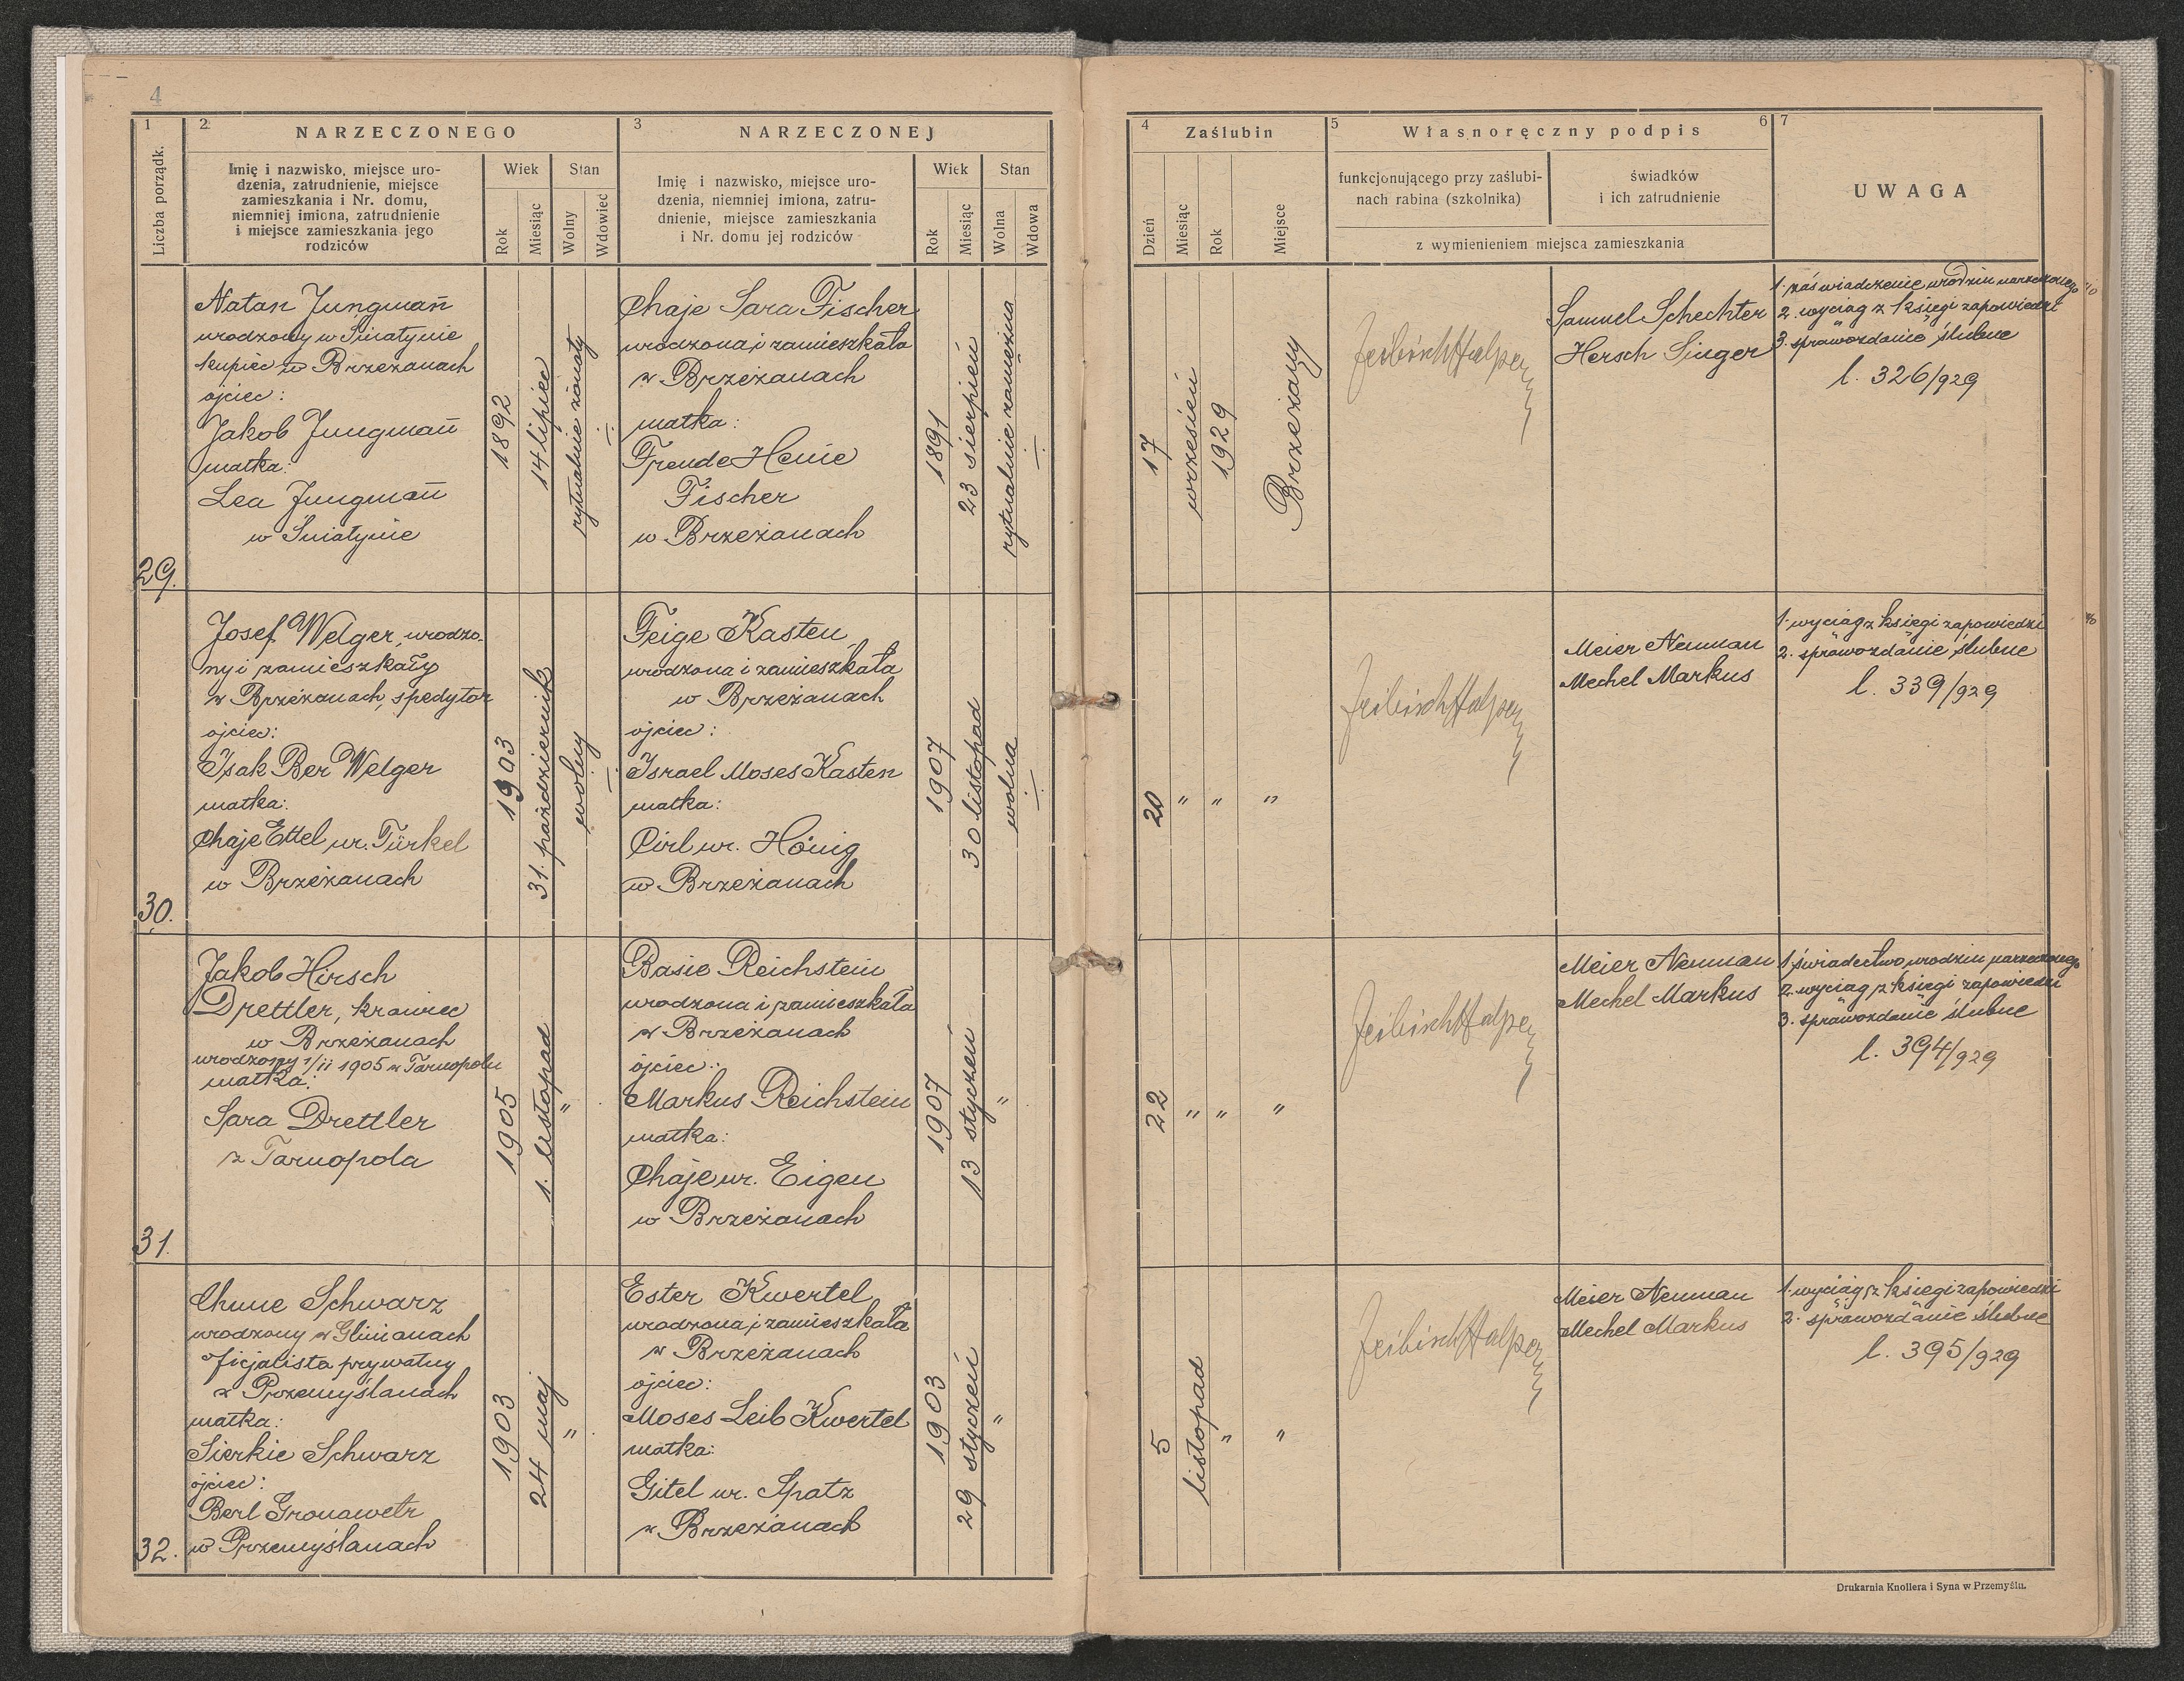 4
1
2
NARZECZONEGO
3
NARZECZONEJ
Liczba porządk.
Imię i nazwisko, miejsce uro-
dzenia, zatrudnienie, miejsce
zamieszkania i Nr. domu,
niemniej imiona, zatrudnienie
i miejsce zamieszkania jego
rodziców
Wiek
Stan
Rok
Miesiąc
Wolny
Wdowiec
Imię i nazwisko, miejsce uro-
dzenia, niemniej imiona, zatru-
dnienie, miejsce zamieszkania
i Nr. domu jej rodziców
Wiek
Stan
Rok
Miesiąc
Wolna
Wdowa
29.
Natan Jungmañ
urodzony w Śniatynie
kupiec w Brzeżanach
ojciec:
Jakob Jungmañ
matka:
Lea Jungmañ
w Śniatynie
1892
14 lipiec
rytualnie żonaty
Chaje Sara Fischer
urodzona i zamieszkała
w Brzeżanach
matka:
Freude Henie
Fischer
w Brzeżanach
1891
23 sierpień
rytualnie zamężna
30.
Josef Welger, urodzo-
ny i zamieszkały
w Brzeżanach, spedytor
ojciec:
Isak Ber Welger
matka:
Chaje Ettel ur. Türkel
w Brzeżanach
1903
31. październik
wolny
Feige Kasten
urodzona i zamieszkała
w Brzeżanach
ojciec:
Israel Moses Kasten
matka:
Cirl ur. Hönig
w Brzeżanach
1907
30 listopad
wolna
31.
Jakob Hirsch
Drettler, krawiec
w Brzeżanach
urodzony 1/11 1905 w Tarnopolu
matka:
Sara Drettler
z Tarnopola
1905
1. listopad
"
Basie Reichstein
urodzona i zamieszkała
w Brzeżanach
ojciec:
Markus Reichstein
matka:
Chaje ur. Eigen
w Brzeżanach
1907
13 styczeń
"
32.
Chune Schwarz
urodzony w Glinianach
oficjalista prywatny
w Przemyślanach
matka:
Sierkie Schwarz
ojciec:
Berl Gronawetr
w Przemyślanach
1903
24 maj
"
Ester Kwertel
urodzona i zamieszkała
w Brzeżanach
ojciec:
Moses Leib Kwertel
matka:
Gitel ur. Spatz
w Brzeżanach
1903
29 styczeń
"
4
Zaślubin
5
Własnoręczny podpis
6
7
Dzień
Miesiąc
Rok
Miejsce
funkcjonującego przy zaślubi-
nach rabina (szkolnika)
świadków
i ich zatrudnienie
z wymienieniem miejsca zamieszkania
UWAGA
17
wrzesień
1929
Brzeżany
Feibisch Halpern
Samuel Schechter
Hersch Singer
1. zaświadczenie urodzin narzeczonego
2. wyciąg z księgi zapowiedzi
3. sprawozdanie ślubne
l. 326/929
20
"
"
"
Feibisch Halpern
Meier Neuman
Mechel Markus
1. wyciąg z księgi zapowiedzi
2. sprawozdanie ślubne
l. 339/929
22
"
"
"
Feibisch Halpern
Meier Neuman
Mechel Markus
1. świadectwo urodzin narzeczonego
2. wyciąg z księgi zapowiedzi
3. sprawozdanie ślubne
l. 394/929
5
listopad
"
"
Feibisch Halpern
Meier Neuman
Mechel Markus
1. wyciąg z księgi zapowiedzi
2. sprawozdanie ślubne
l. 395/929
Drukarnia Knollera i Syna w Przemyślu.